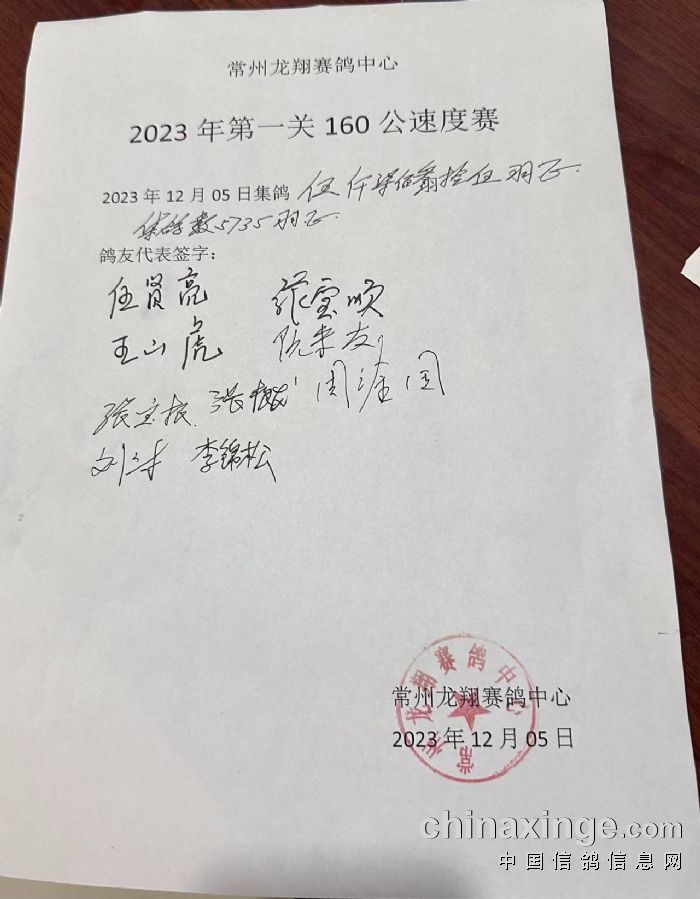 常州龙翔赛鸽中心
2023 年第一关 160 公速度赛
2023 年 12 月 05 日集鸽 伍仟柒佰叁拾伍羽正.
集鸽数5735羽正.
鸽友代表签字：
任贤亮 宝顺
王山虎 阮来友
张宝根 张 周金国
刘 李锦松
常州龙翔赛鸽中心
常州龙翔赛鸽中心
2023 年 12 月 05 日
chinaxinge.com
中国信鸽信息网